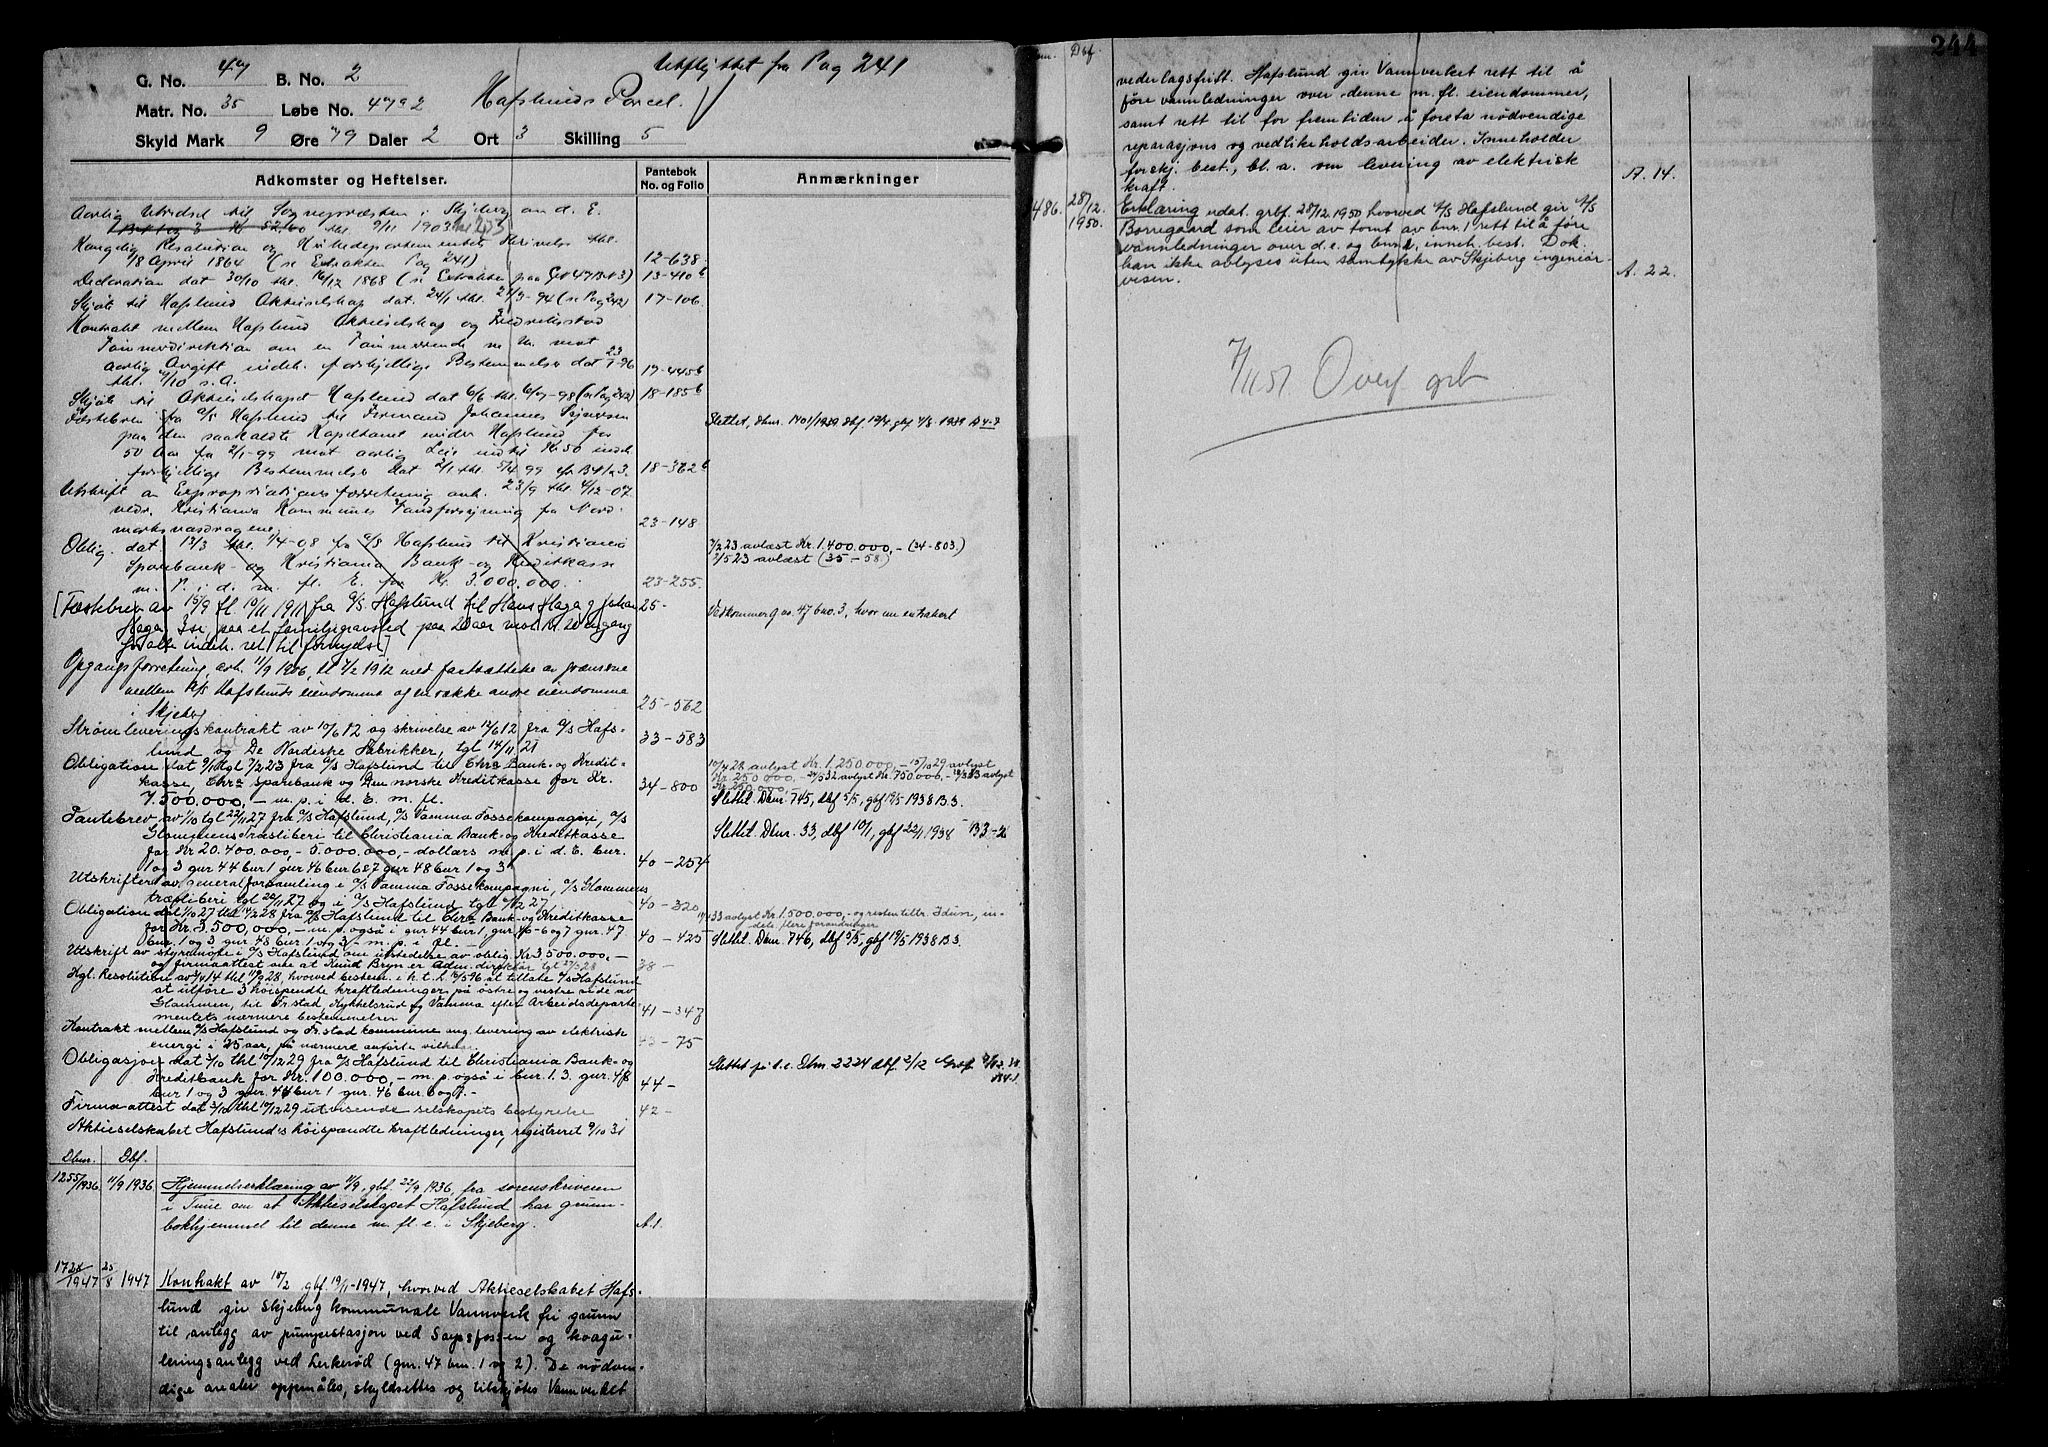 244
Utflyttet fra Pag 241
G. No. 47 B. No. 2
Matr. No. 35 Løbe No. 4792 Hafslunds Parcel.
Skyld Mark 9 Øre 79 Daler 2 Ort 3 Skilling 5
Adkomster og Heftelser.
Pantebok No. og Folio
Anmærkninger
Aarlig Utredsel til Sognepræsten i Skjeberg an d. E.
Kongelig Resolution og Kirkedepartementets Skrivelse thl.
18 April 1864 (se Extrakten Pag 241) 12-638.
Declaration dat 30/10 thl. 16/12 1868 (se Extrakten paa G№47 B№3) 13-410b
Skjøte til Hafslund Aktieselskap dat. 24/1 thl. 27/3-94 (se Pag 242) 17-106.
Kontrakt mellem Hafslund Aktieselskap og Fredriksstad
aarlig Avgift indeh. forskjellige Bestemmelser dat 23/7-96
thl. 9/10 s. a. 17-445b
Skjøte til Aktieselskapet Hafslund dat 6/6 thl. 6/7-98 (se Pag 242) 18-185b
Festebrev fra A/S Hafslund til Formand Johannes Sejersen
paa den saakaldte under Hafslund for
50 Aar fra 2/1-99 mot aarlig Leie indtil Kr 50 indeh.
forskjellige Bestemmelser dat 2/1 thl. 5/4 99 18-362b
Slettet, Dbnr. 1401/1939. dbf. 19/4, gbf. 4/8. 1939 A 4-7
Utskrift av Expropriationsforretning avh. 23/9 thl. 4/12-07.
vedr. Kristiania Kommunes Vandforsyning fra Nord-
marksvasdragene. 23-148
Oblig. dat 13/3 thl. 7/4-08 fra A/S Hafslund til Kristiania
Sparebank- og Kristiania Bank- og Kreditkasse
m. P. i d. m. fl. E. for Kr. 3.000.000. 23-255
7/2 23 avlæst Kr. 1.400.000,- (34-803)
2/5 23 avlæst (35-58)
[Fæstebrev av 15/9 tl. 10/11 1911 fra A/S Hafslund til Hans Haga og Johan 25-
Haga Ise paa et familiegravsted paa 20 aar mot Kr. 20 engang
for alle indeh. ret til fornyelse]
Vedkommer g.no. 47 b.no. 3, hvor den er extrahert
Opgangsforretning avh. 11/9 1906, tl 2/2 1912 med fastsættelse av grænserne
mellem A/S Hafslunds eiendomme og en række andre eiendomme
i Skjeberg 25-562
Strømleveringskontrakt av 10/6 12 og skrivelse av 12/6 12 fra A/S Hafs-
lund og til De Nordiske Fabrikker, tgl 14/11 21 33-583
Obligation dat 9/1 tgl 7/2 23 fra A/S Hafslund til Chra Bank- og Kredit-
kasse, Chra Sparebank og Den norske Kreditkasse for Kr.
7.500.000,- m. p. i d. E. m. fl. 34-800
10/4 28 avlyst Kr. 1.250.000,- 15/10 29 avlyst
Kr 250 000,- 24/5 32 avlyst Kr. 750.000,- 18/3 33 avlyst
Kr 250.000,-
Slettet. Dbnr. 745, dbf 5/5, gbf 19/5 1938 B 3.
Pantebrev av 1/10 tgl 22/11 27 fra A/S Hafslund, A/S Vamma Fossekompagni, A/S
Glommens Træsliberi til Christiania Bank- og Kreditkasse
for Kr 20.400.000,- 5.000.000,- dollars m. p. i d. E. bnr.
1 og 3 gnr 44 bnr 1 gnr 46 bnr 6 & 7 gnr 48 bnr 1 og 3 40-254
Slettet. Dbnr. 33, dbf 10/1, gbf 22/1 1938 B 3-2
Utskrifter av generalforsamling i A/S Vamma Fossekompagni, A/S Glommens
træsliberi tgl 22/11 27 og i A/S Hafslund tgl 6/12 27 40-320
Obligation dat 1/10 27 thl 14/2 28 fra A/S Hafslund til Chra Bank- og Kreditkasse
for Kr. 3.500.000,- m. p. også i gnr 44 bnr 1, gnr 46-6 og 7 gnr. 47
bnr. 1 og 3 gnr. 48 bnr 1 og 3 - m. p. i fl. - 40-425
33 avlyst Kr. 1.500.000,- og resten tiltr. Idun, in-
dels flere forandringer
Slettet. Dbnr. 746, dbf 5/5, gbf 19/5 1938 B 3.
Utskrift av styremøte i A/S Hafslund om utstedelse av oblig. Kr 3 500.000,-
og firmaattest om at Knud Bryn er Adm. direktør tgl 27/3 28 38-
Kgl. Resolution av 14/4 14 thl 11/9 28, hvorved bestem. i k. t. l 15/5 96 at tillate A/S Hafslund
at utføre 3 høispendte kraftledninger på østre og vestre side av
Glommen, til Fr.stad, Kykkelsrud og Vamma efter Arbeidsdeparte-
mentets nærmere bestemmelser 41-347
Kontrakt mellem A/S Hafslund og Fr.stad kommune ang. levering av elektrisk
energi i 25 aar, på nærmere anførte vilkaar. 43-75
Obligasjon dat 3/10 thl 10/12 29 fra A/S Hafslund til Christiania Bank- og
Kreditbank for Kr. 100.000,- m. p. også i bnr. 1. 3. gnr. 48
bnr 1 og 3 gnr. 44 bnr 1 gnr. 46 bnr. 6 og 7. - 44-
Slettet på d. e. Dbnr 2224 dbf. 2/12
Firma-attest dat 3/10 thl 10/12 29 utvisende selskapets bestyrelse 42-
Aktieselskabet Hafslund's høispændte kraftledninger, registreret 9/10 31
Dbnr. Dbf.
1255/1936 11/9 1936 Hjemmelserklæring av 11/9, gbf 22/9 1936, fra sorenskriveren
i Tune om at Aktieselskapet Hafslund har grunn-
bokhjemmel til denne m. fl. e. i Skjeberg. A. 1.
1724/1947 25/8 1947 Kontrakt av 18/2 gbf. 19/11-1947, hvorved Aktieselskabet Hafs-
lund gir Skjeberg kommunale Vannverk fri grunn
til anlegg av pumpestasjon ved Sarpsfossen og koagu-
leringsanlegg ved Lerkerød (gnr. 47 bnr. 1 og 2). De nødven-
dige arealer oppmåles, skyldsettes og tilskjøtes Vannverket
Dbf.
vederlagsfritt. Hafslund gir Vannverket rett til å
føre vannledninger over denne m. fl. eiendommer,
samt rett til for fremtiden å foreta nødvendige
reparasjons og vedlikeholdsarbeider. Inneholder
forskj. best., bl. a. om levering av elektrisk
kraft. A. 14.
486. 28/12. 1950. Erklæring udat. grbf. 28/12 1950 hvorved A/S Hafslund gir A/S
Borregaard som leier av tomt av bnr. 1 rett til å føre
vannledninger over d. e. og bnr. 1, inneh. best. Dok.
kan ikke avlyses uten samtykke av Skjeberg ingeniør-
vesen. A. 22.
7/11 51 Overf grb